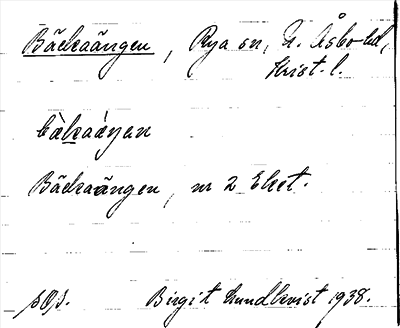 Bäckaängen, Rya sn, N. Åsbo hd,
Krist. l.
bàkaáŋan
Bäckaängen, nr 2 Eket.
Birgit Lundkvist 1938.